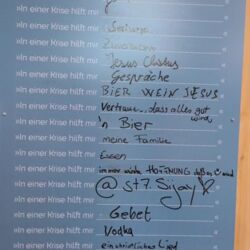 »In einer Krise hilft mir
»In einer Krise hilft mir
»In einer Krise hilft mir
»In einer Krise hilft mir Jesus Christus
»In einer Krise hilft mir Gespräche
»In einer Krise hilft mir BIER WEIN JESUS
»In einer Krise hilft mir Vertraue, dass alles gut wird,
»In einer Krise hilft mir 'n Bier
»In einer Krise hilft mir meine Familie
»In einer Krise hilft mir Essen
»In einer Krise hilft mir immer wieder HOFFNUNG
»In einer Krise hilft mir @st7.Sijay
»In einer Krise hilft mir
»In einer Krise hilft mir Gebet
»In einer Krise hilft mir Vodka
»In einer Krise hilft mir ein christliches Lied